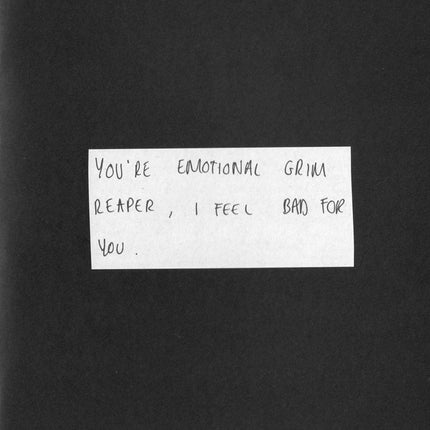 YOU'RE EMOTIONAL GRIM
REAPER, I FEEL BAD FOR
YOU.